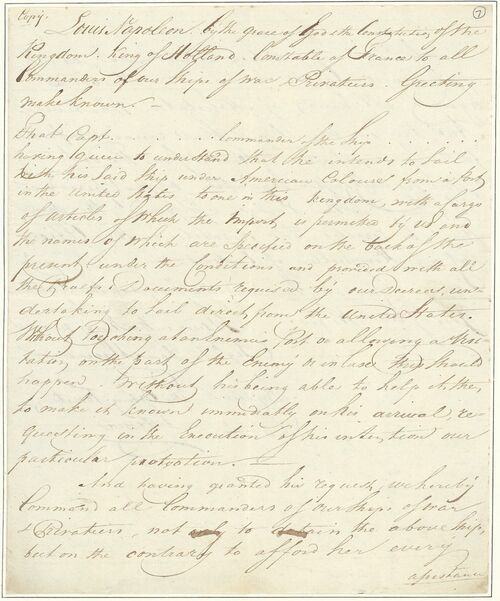 Copy.
7
Louis Napoleon by the grace of God & the Constitution of the
Kingdom. King of Holland. Constable of France to all
Commanders of our Ships of war Privatiers. Greeting
make known. —
That Capt. . . . . . . . . Commander of the Ship . . . . . . .
having given to understand that he intends to Sail
with his said Ship under American Colours from a Port
in the United States to one in this Kingdom, with a Cargo
of articles of Which the Import is permitted by us and
the names of Which are Specified on the back of the
present under the Conditions and provided with all
the Proofs & Documents requested by our Decrees, un-
dertaking to Sail direct from the United States.
Without touching at an Enemies Port or allowing a Visi-
tation, on the part of the Enemy or in case this Should
happen. Without his being able to help it, then
to make it known immediatly on his arrival re-
questing in the Execution of his intention our
particular protection. —
And having granted his request, we hereby
Command all Commanders of our Ships of war
& Privatiers, not only to detain the above Ship,
but on the contrary to afford her every
assistance